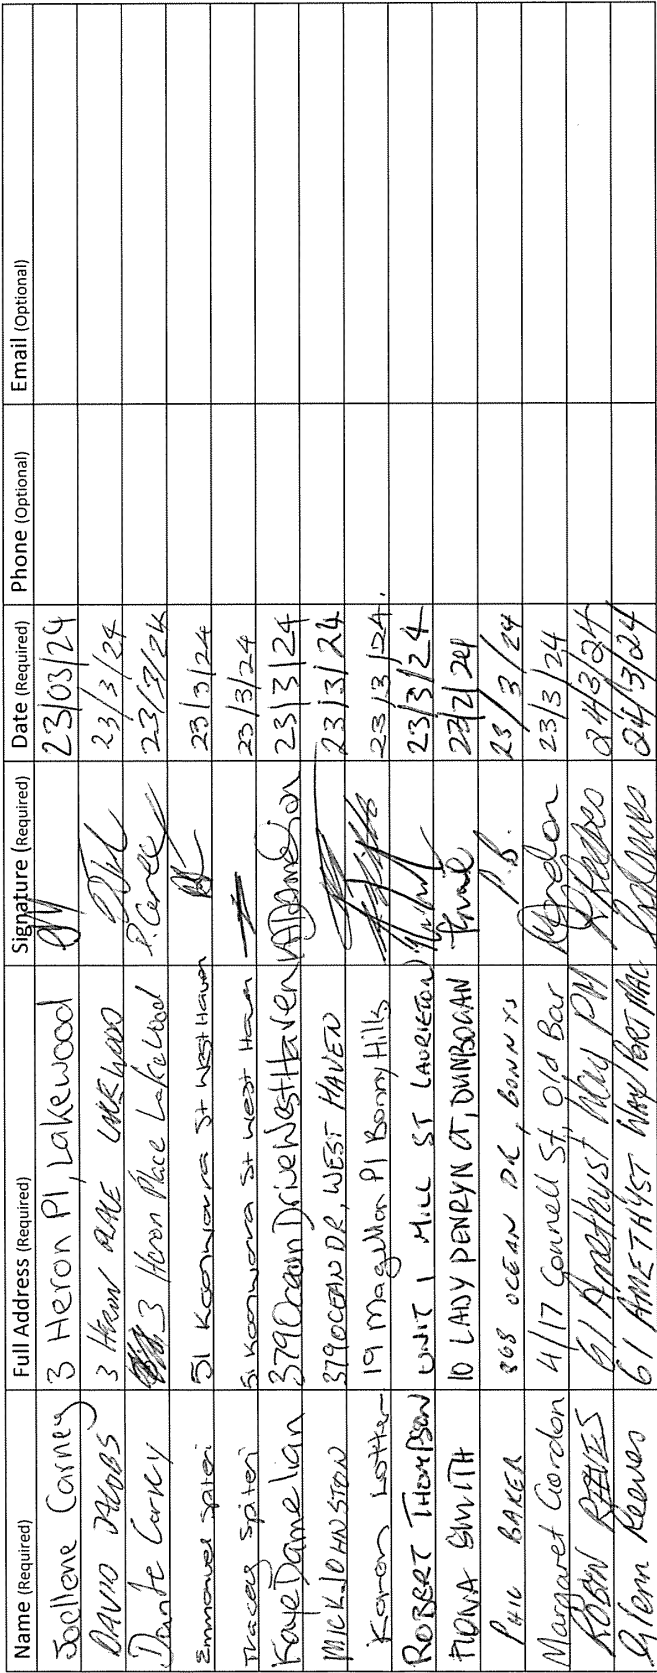 Name (Required) Full Address (Required) Signature (Required) Date (Required) Phone (Optional) Email (Optional)
Joellene Carney 3 Heron Pl, Lakewood 23/03/24
DAVID JACOBS 3 HERON PLACE LAKEWOOD 23/3/24
Dante Carney 3 Heron Place Lakewood D. Carney 23/3/24
Emmanuel Spiteri 51 Koonwarra St West Haven 23/3/24
Tracey Spiteri 51 Koonwarra St West Haven 23/3/24
Kaye Damelian 379 Ocean Drive West Haven KADamelian 23/3/24
MICK JOHNSTON 379 OCEAN DR, WEST HAVEN 23/3/24
Karen Lotter 19 Magellan Pl Bonny Hills 23/3/24.
ROBERT THOMPSON UNIT 1 MILL ST LAURIETON 23/3/24
FIONA SMITH 10 LADY PENRYN CT, DUNBOGAN 23/2/24
PHIL BAKER 868 OCEAN DR, BONNYS P.B. 23/3/24
Margaret Gordon 4/17 Connell St, Old Bar MGordon 23/3/24
ROBYN REEVES 61 Amethyst Way PM RReeves 24/3/24
Glenn Reeves 61 AMETHYST WAY PORT MAC 24/3/24